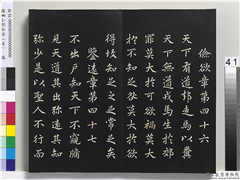 儉欲章第四十六
天下有道却走馬以糞
天下無道戎馬生於郊
罪莫大於可欲禍莫大
於不知足咎莫大於欲
得故知足之足常足矣
鑒遠章第四十七
不出戶知天下不窺牖
見天道其出弥遠其知
弥少是以聖人不行而
41